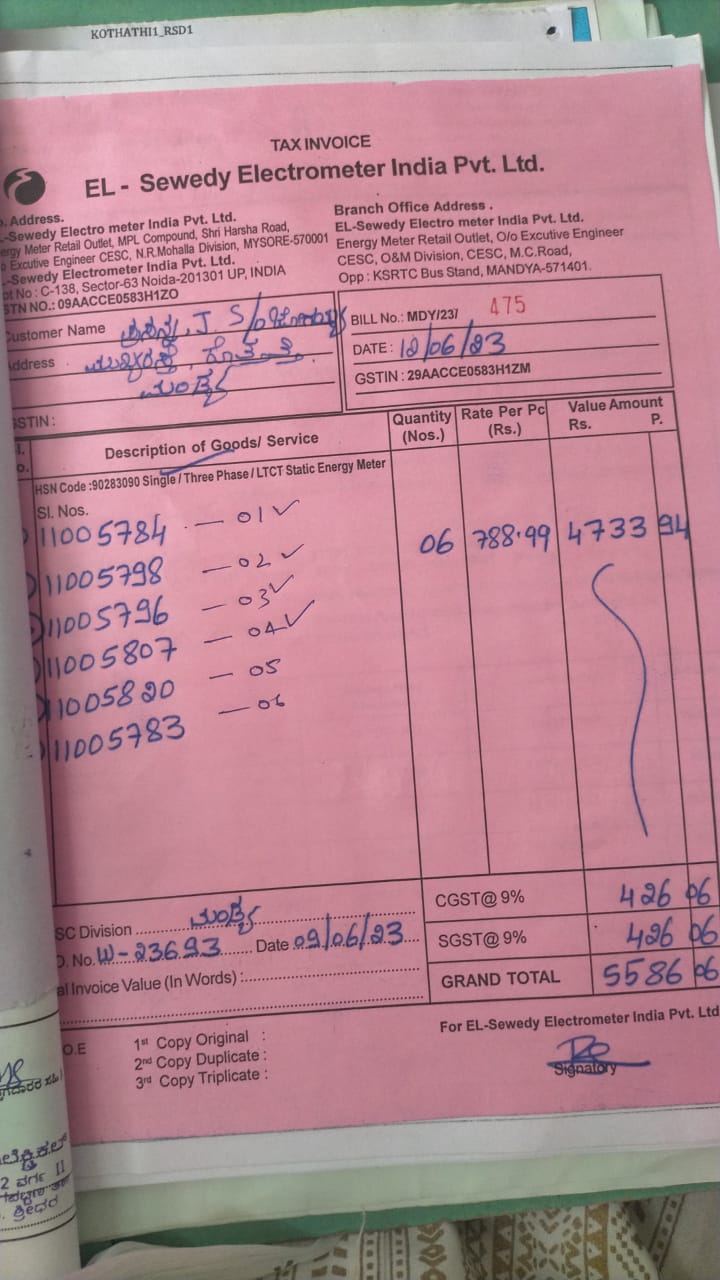 KOTHATHI1_RSD1
TAX INVOICE
EL - Sewedy Electrometer India Pvt. Ltd.
. Address.
-Sewedy Electro meter India Pvt. Ltd.
ergy Meter Retail Outlet, MPL Compound, Shri Harsha Road,
Excutive Engineer CESC, N.R.Mohalla Division, MYSORE-570001
-Sewedy Electrometer India Pvt. Ltd.
ot No : C-138, Sector-63 Noida-201301 UP, INDIA
STN NO.: 09AACCE0583H1ZO
Branch Office Address .
EL-Sewedy Electro meter India Pvt. Ltd.
Energy Meter Retail Outlet, O/o Excutive Engineer
CESC, O&M Division, CESC, M.C.Road,
Opp : KSRTC Bus Stand, MANDYA-571401.
Customer Name J. S/o
Address
ಮಂಡ್ಯ
GSTIN :
BILL No.: MDY/23/ 475
DATE : 12/06/23
GSTIN : 29AACCE0583H1ZM
Description of Goods/ Service
Quantity (Nos.)
Rate Per Pc (Rs.)
Value Amount
Rs. P.
HSN Code :90283090 Single / Three Phase / LTCT Static Energy Meter
Sl. Nos.
11005784 - 01 ✓
11005798 - 02 ✓
11005796 - 03 ✓
11005807 - 04 ✓
11005820 - 05
11005783 - 06
06 788.99 4733 94
CGST@ 9% 426 06
SGST@ 9% 426 06
GRAND TOTAL 5586 06
SC Division ಮಂಡ್ಯ
. No. W-23693 Date 09/06/23
al Invoice Value (In Words) :
O.E
1st Copy Original :
2nd Copy Duplicate :
3rd Copy Triplicate :
For EL-Sewedy Electrometer India Pvt. Ltd
Signatory
2 ವರ್ಗ II
ಶ್ರೀಧರ